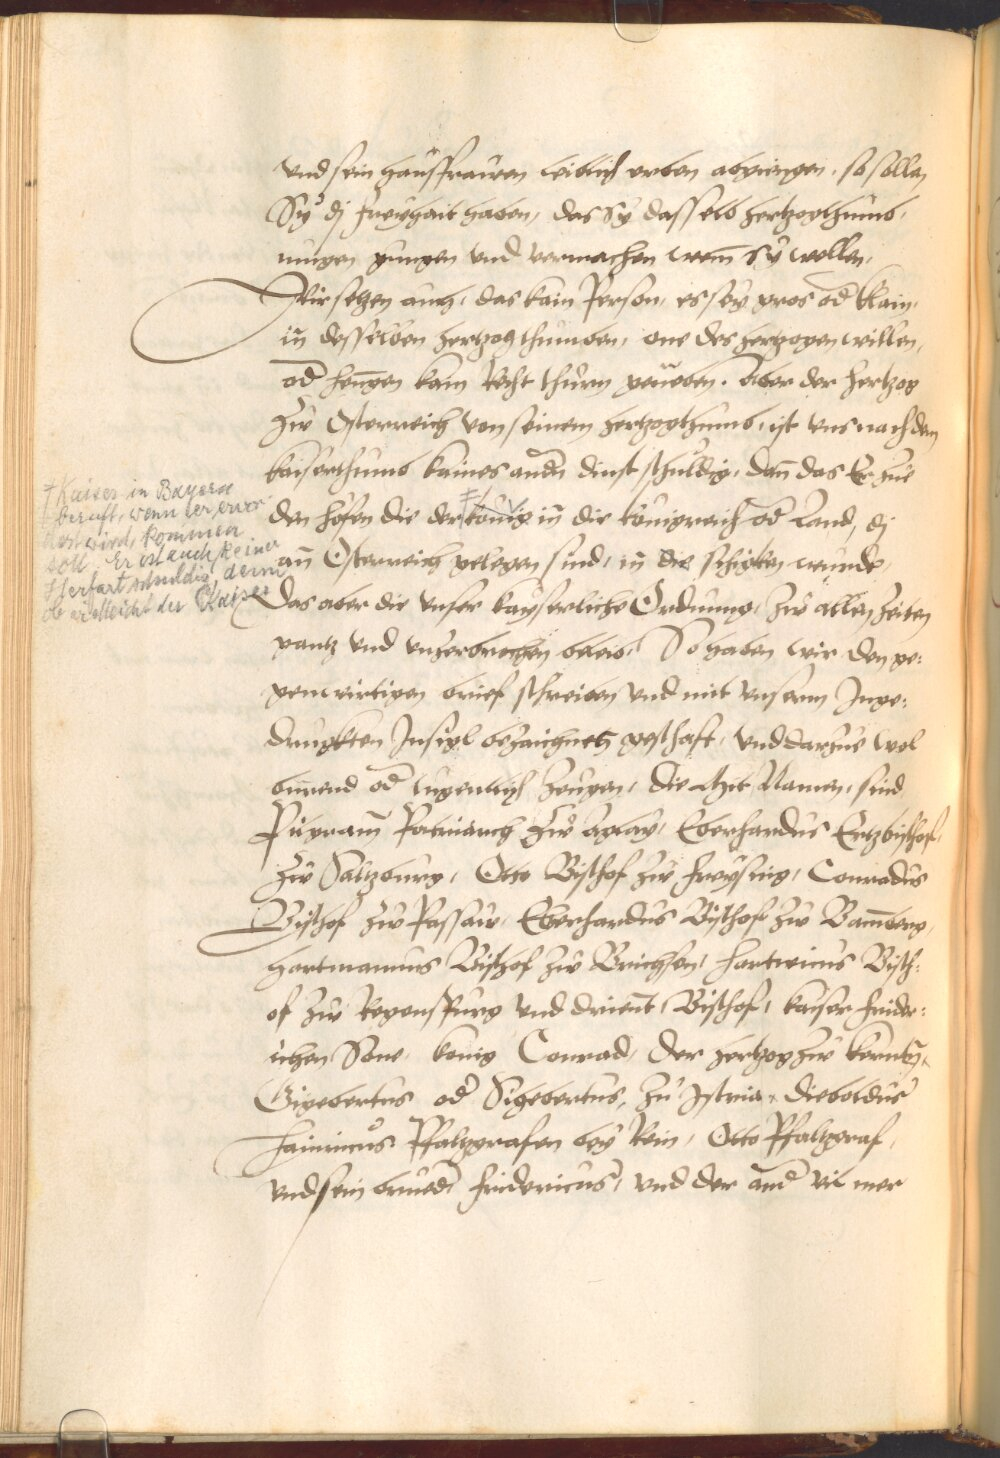 Und sein hausfrauen leiblich erben abgiengen, so sollen
Sy dj freyhait haben, das sy dasselb hertzogthumb,
mugen gungen und vermachen wem sy wellen.
Wir setzen auch, das kain Person, es sey gros od klain,
in desselben hertzogthumben, one des hertzogen willen,
od hengen kain Recht thurn geueben. Aber der hertzog
zw Osterreich von seinem hertzogthumb, ist uns nach dem
kaiserthumb kaines andn dinst schuldig, dan das Er zue
den höfen die der könig in die königreich od Land, dj
an Osterreich gelegen sind, in die schigken wurde,
Das aber die unser kayserliche Ordnung, zw allen zeiten
gantz und unzerbrochen beleib, So haben wir den ge:
genwirtigen brief schreiben und mit unserm Inge:
drugkten Insigl bezaichnet geschaft, und darzue wol
od tugentlich zeugen, die Namen, sind
Pilgram Patriarch zw Aglay, Eberhardus Ertzbischof,
zw Saltzburg, Otto Bischof zw freysing, Conradus
Bischof zw Passaw, Eberhardus Bischof zw Bamberg,
Hartmannus Bischof zw Brichsen, Hartwicus Bisch:
of zw Regenspurg und drient Bischof, kaiser frider:
ichen Sone, konig Conrad, der hertzog zw kerntn,
Gigebertus od Sigebertus, zu Istria, Dieboldus
Hainricus Pfaltzgrafen bey Rein, Otto Pfaltzgraf,
und sein brueder fridericus, und der and vil mer
+ Kaiser in Bayern
beruft, wenn er, er vor
dert wird, kommen
soll. Er ist auch keiner
Herfart schuldig, denn
ob er vielleicht der Kaiser